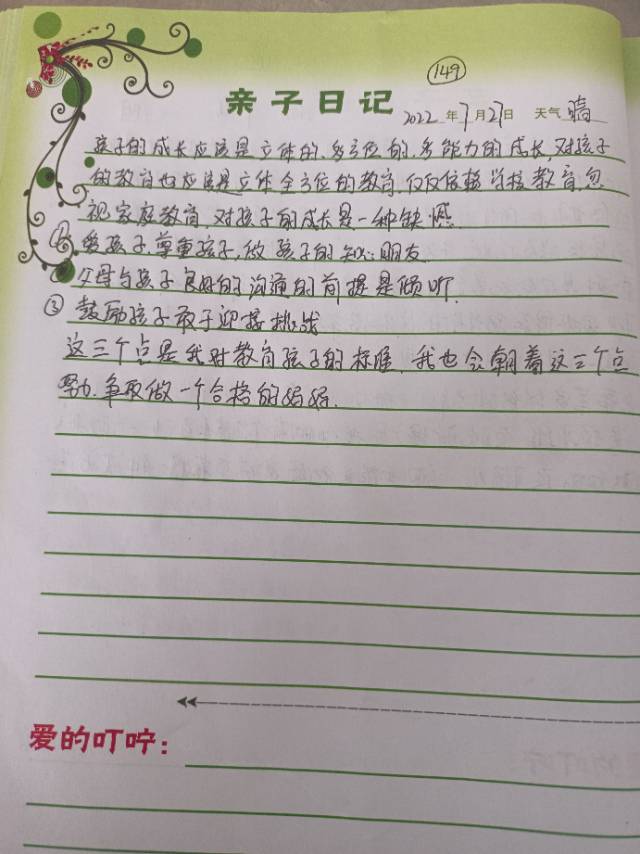 149
亲子日记 2022年7月27日 天气 晴
孩子的成长应该是立体的,多方位的,多能力的成长,对孩子
的教育也应该是立体全方位的教育,仅仅依赖学校教育,忽
视家庭教育,对孩子的成长是一种缺憾.
①爱孩子.尊重孩子,做孩子的知心朋友.
②父母与孩子良好的沟通的前提是倾听.
③鼓励孩子敢于迎接挑战
这三个点是我对教育孩子的标准,我也会朝着这三个点
努力.争取做一个合格的妈妈.
爱的叮咛: